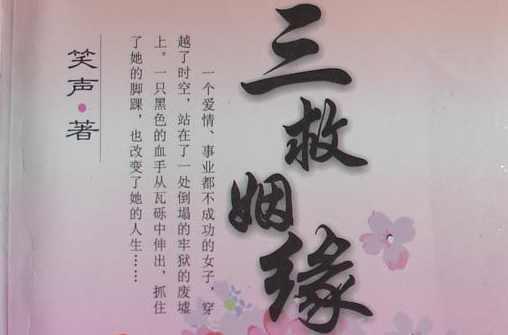 三救姻缘
一个爱情、事业都不成功的女子，穿
越了时空，站在了一处倒塌的牢狱的废墟
上。一只黑色的血手从瓦砾中伸出，抓住
了她的脚踝，也改变了她的人生……
笑声·著